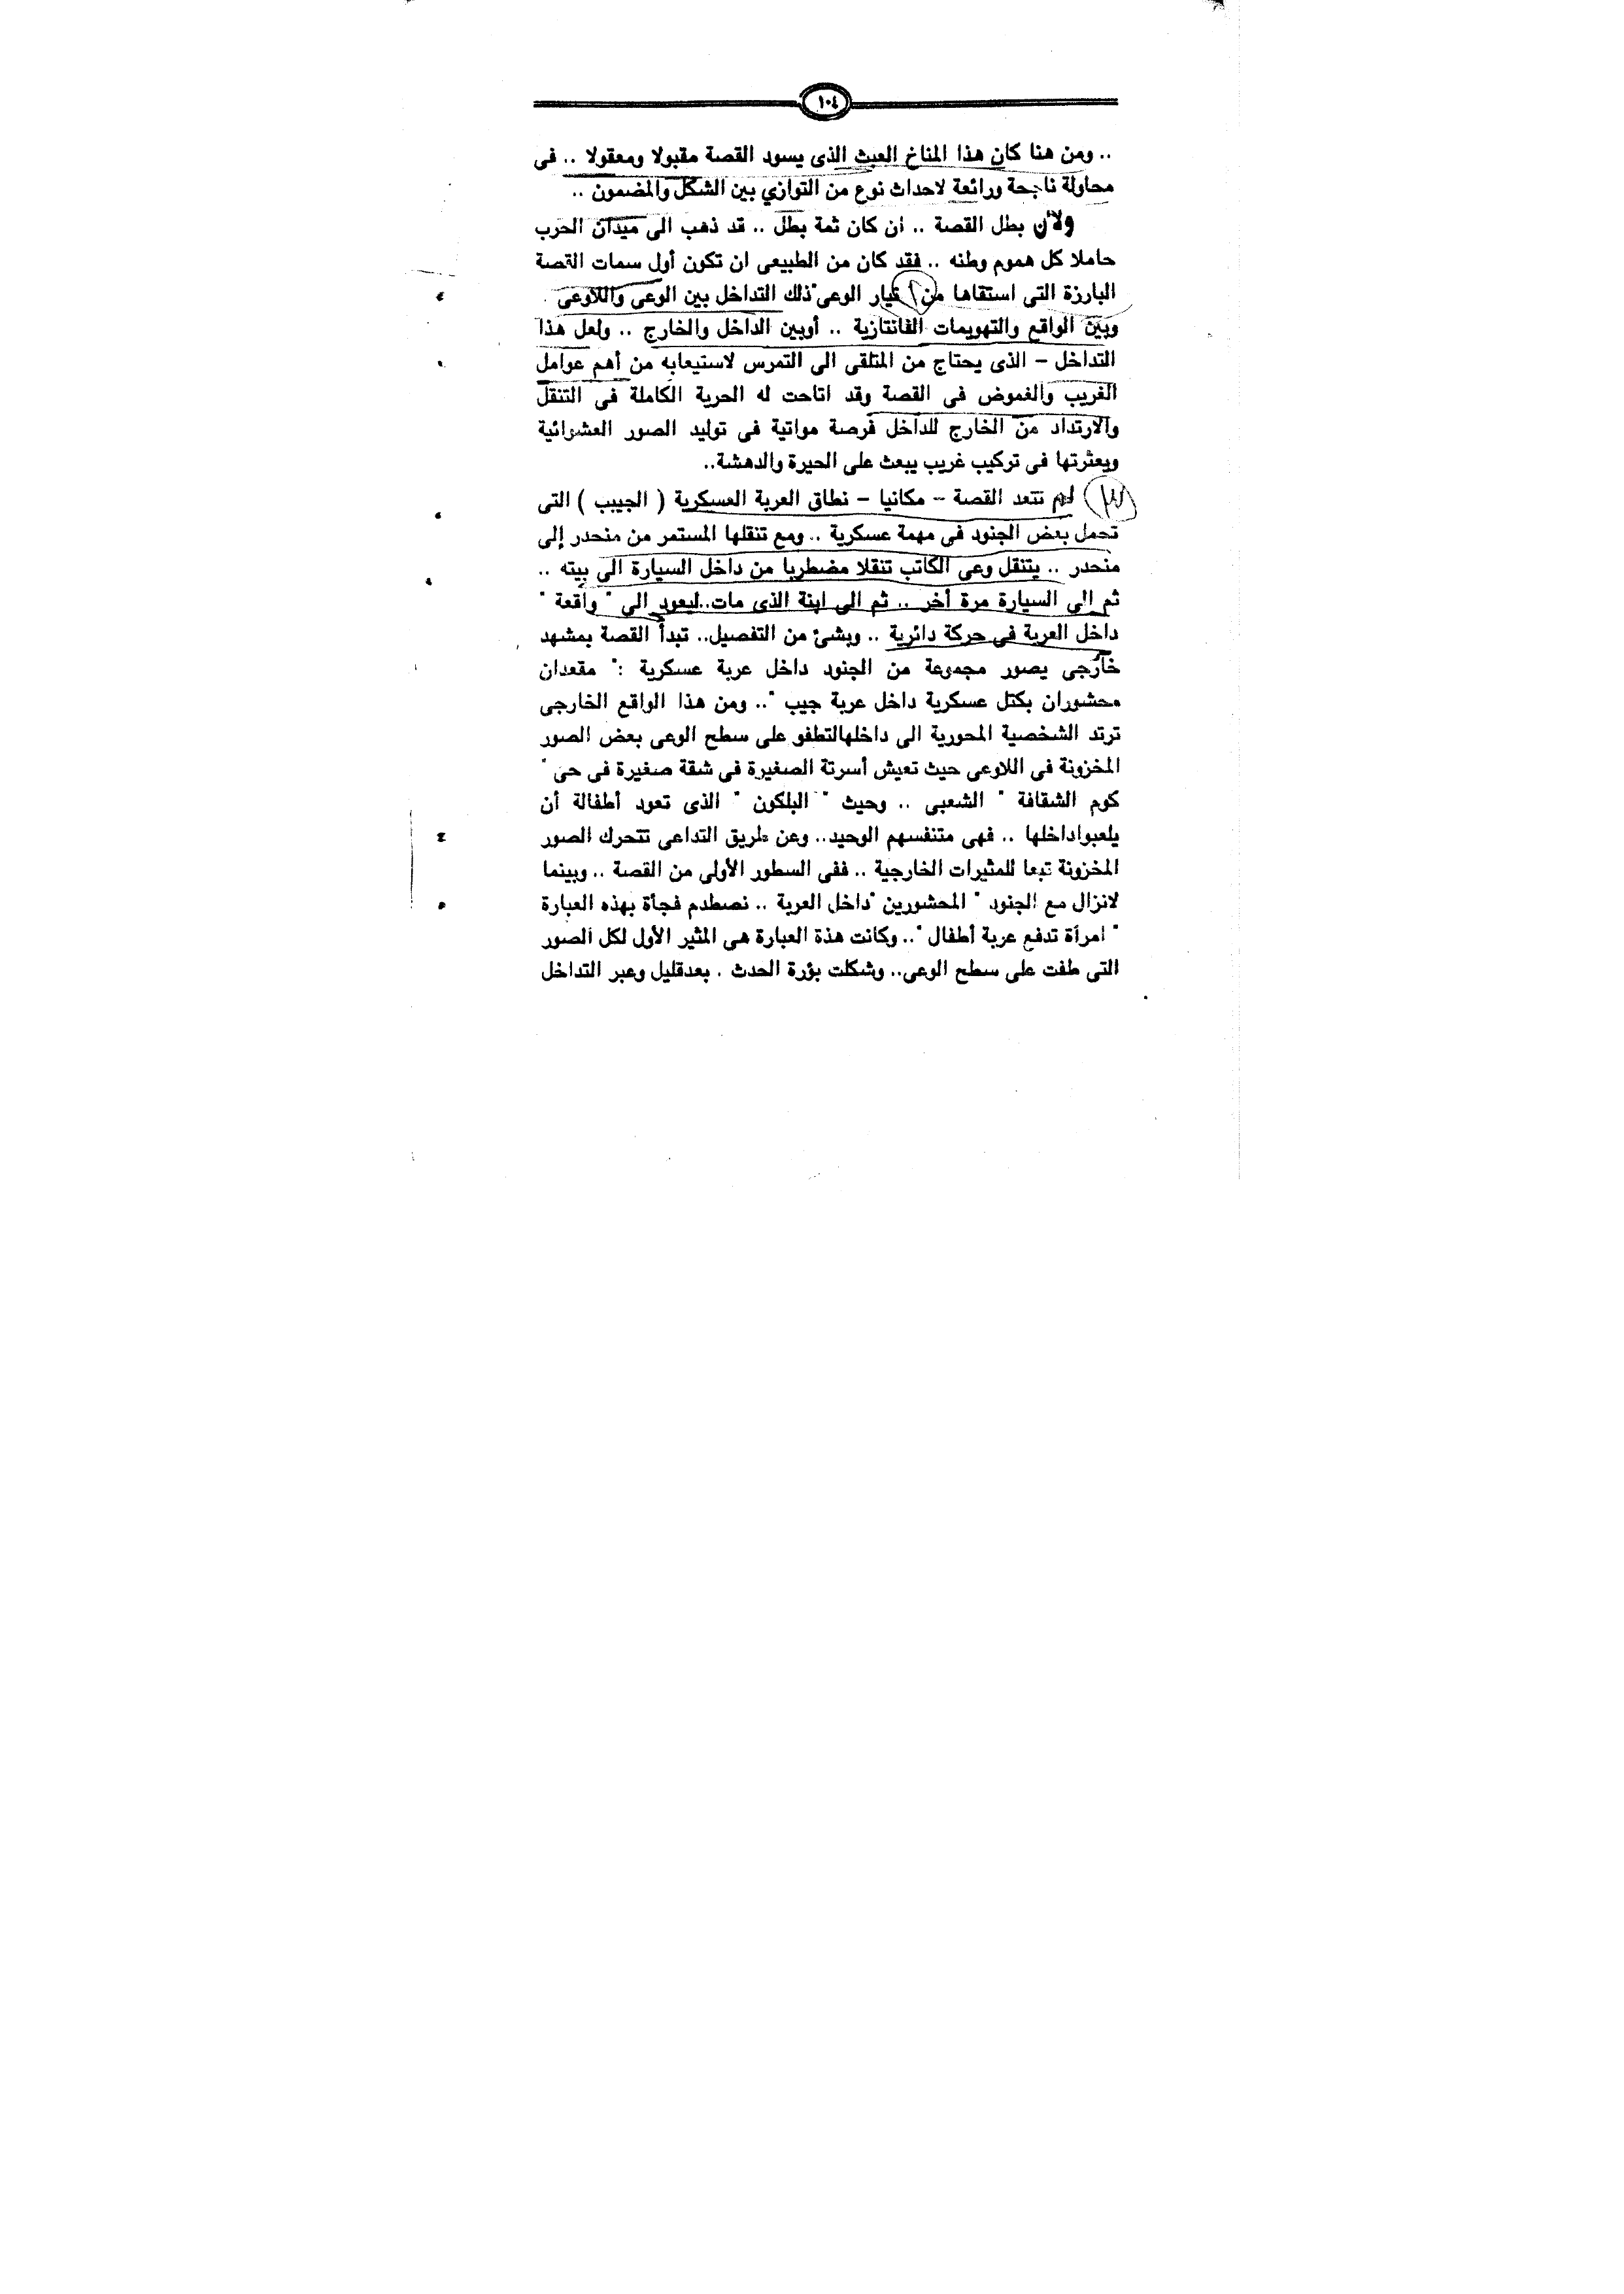 ١٠٤
.. ومن هنا كان هذا المناخ العبث الذى يسود القصة مقبولا ومعقولا .. فى
محاولة ناجحة ورائعة لاحداث نوع من التوازي بين الشكل والمضمون ..
ولأن بطل القصة .. ان كان ثمة بطل .. قد ذهب الى ميدان الحرب
حاملا كل هموم وطنه .. فقد كان من الطبيعى ان تكون أول سمات القصة
البارزة التى استقاها من تيار الوعى" ذلك التداخل بين الوعى واللاوعى
وبين الواقع والتهويمات الفانتازية .. أوبين الداخل والخارج .. ولعل هذا
التداخل – الذى يحتاج من المتلقى الى التمرس لاستيعابه من أهم عوامل
الغريب والغموض فى القصة وقد اتاحت له الحرية الكاملة فى التنقل
والارتداد من الخارج للداخل فرصة مواتية فى توليد الصور العشوائية
وبعثرتها فى تركيب غريب يبعث على الحيرة والدهشة..
لم تتعد القصة – مكانيا – نطاق العربة العسكرية ( الجيب ) التى
تحمل بعض الجنود فى مهمة عسكرية .. ومع تنقلها المستمر من منحدر إلى
منحدر .. يتنقل وعى الكاتب تنقلا مضطربا من داخل السيارة الى بيته ..
ثم الى السيارة مرة أخر .. ثم الى ابنة الذى مات..ليعود الى " واقعة "
داخل العربة فى حركة دائرية .. وبشئ من التفصيل.. تبدأ القصة بمشهد
خارجى يصور مجموعة من الجنود داخل عربة عسكرية :" مقعدان
محشوران بكتل عسكرية داخل عربة جيب ".. ومن هذا الواقع الخارجى
ترتد الشخصية المحورية الى داخلهالتطفو على سطح الوعى بعض الصور
المخزونة فى اللاوعى حيث تعيش أسرتة الصغيرة فى شقة صغيرة فى حى "
كوم الشقافة " الشعبى .. وحيث " البلكون " الذى تعود أطفالة أن
يلعبواداخلها .. فهى متنفسهم الوحيد.. وعن طريق التداعى تتحرك الصور
المخزونة تبعا للمثيرات الخارجية .. ففى السطور الأولى من القصة .. وبينما
لانزال مع الجنود " المحشورين "داخل العربة .. نصطدم فجأة بهذه العبارة
" امرأة تدفع عربة أطفال ".. وكانت هذة العبارة هى المثير الأول لكل الصور
التى طفت على سطح الوعى.. وشكلت بؤرة الحدث . بعدقليل وعبر التداخل